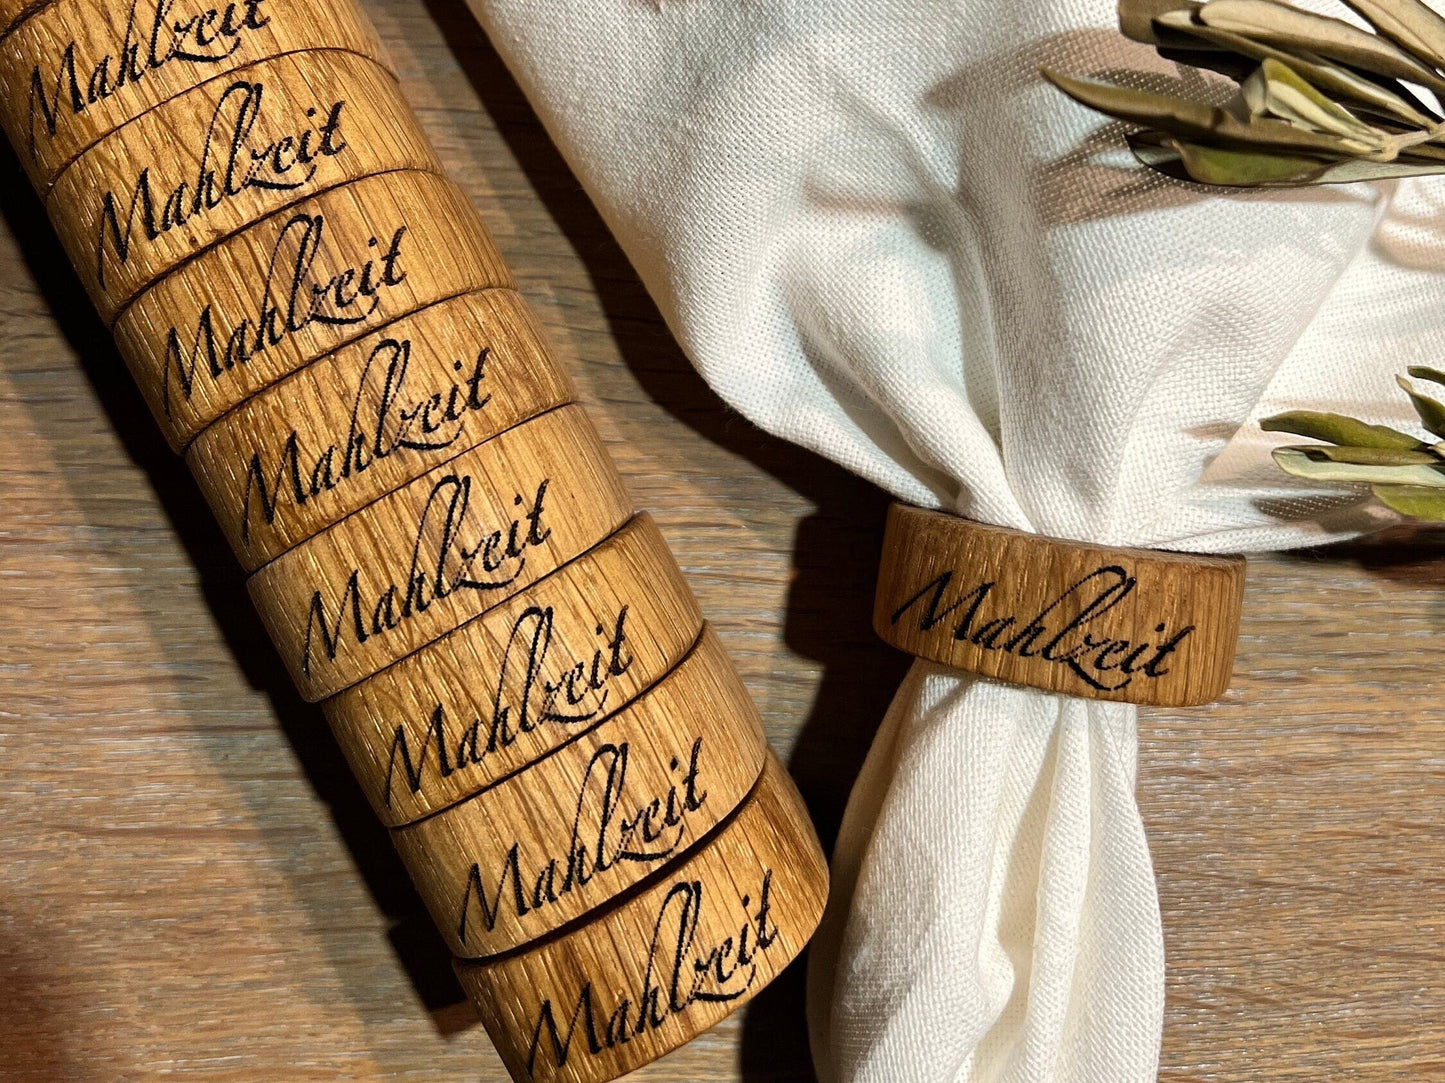 Mahlzeit
Mahlzeit
Mahlzeit
Mahlzeit
Mahlzeit
Mahlzeit
Mahlzeit
Mahlzeit
Mahlzeit